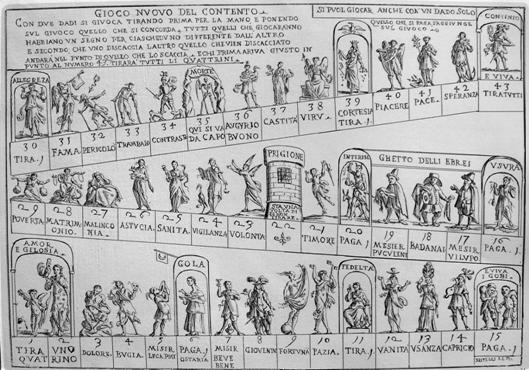 GIOCO NUOVO DEL CONTENTO
CON DUE DADI SI GIVOCA TIRANDO PRIMA PER LA MANO E PONENDO
SVL GIVOCO QVELLO CHE SI CONCORDA. TVTTI QVELLI CHE GIOCARANNO
HABBIANO VN SEGNO PER CIASCHEDVNO DIFFERENTE L'DALL ALTRO
E SECONDO, CHE VNO DISCACCIA L'ALTRO QVELLO CHE VIEN DISCACCIATO
ANDARA NEL PVNTO DI QVELLO CHE LO SCACCIA. E CHI PRIMA ARIVA GIVSTO IN
PVNTO AL NVMERO 43 TIRARA TVTTI LI QVATTRINI
SI PVOL GIOCAR ANCHE CON VN DADO SOLO
QVELLO CHE SI PAGA
SVL GIVOCO
CONTENTO
E VIVA
ALLEGREZA
MORTE
30 31 32 33 34 35 36 37 38 39 40 41 42 43
TIRA. I
FAMA
PERICOLO
TRAVAIO
CONTRASTO
QVI SI VA DA CAPO
AVGVRIO BVONO
CASTITA
VIRV
CORTESIA TIRA. I
PIACERE
PACE
SPERANZA
TIRATVTTI
PRIGIONE
INTERIM
GHETTO DELLI EBREI
VSVRA
29 28 27 26 25 24 23 22 21 20 19 18 17 16
POVERTA
MATRIMONIO.
MALINCONIA
ASTVCIA
SANITA
VIGILANZA
VOLONTA
TIMORE
PAGA. I
MESIER PVCVLINI
BADANAI
MESIR VILVPO
PAGA. I
AMOR E GELOSIA
GOLA
FEDELTA
E VIVA I GOBI
1 2 3 4 5 6 7 8 9 10 11 12 13 14 15
TIRA QVAT
VNO RINO
DOLORE
BVGIA
MISIR
PAGA. I OSTARIA
MISIR BEVE BENE
GIOVENTV
FORTVNA
PAZIA
TIRA. I
VANITA
VSANZA
CAPRICIO
PAGA. I